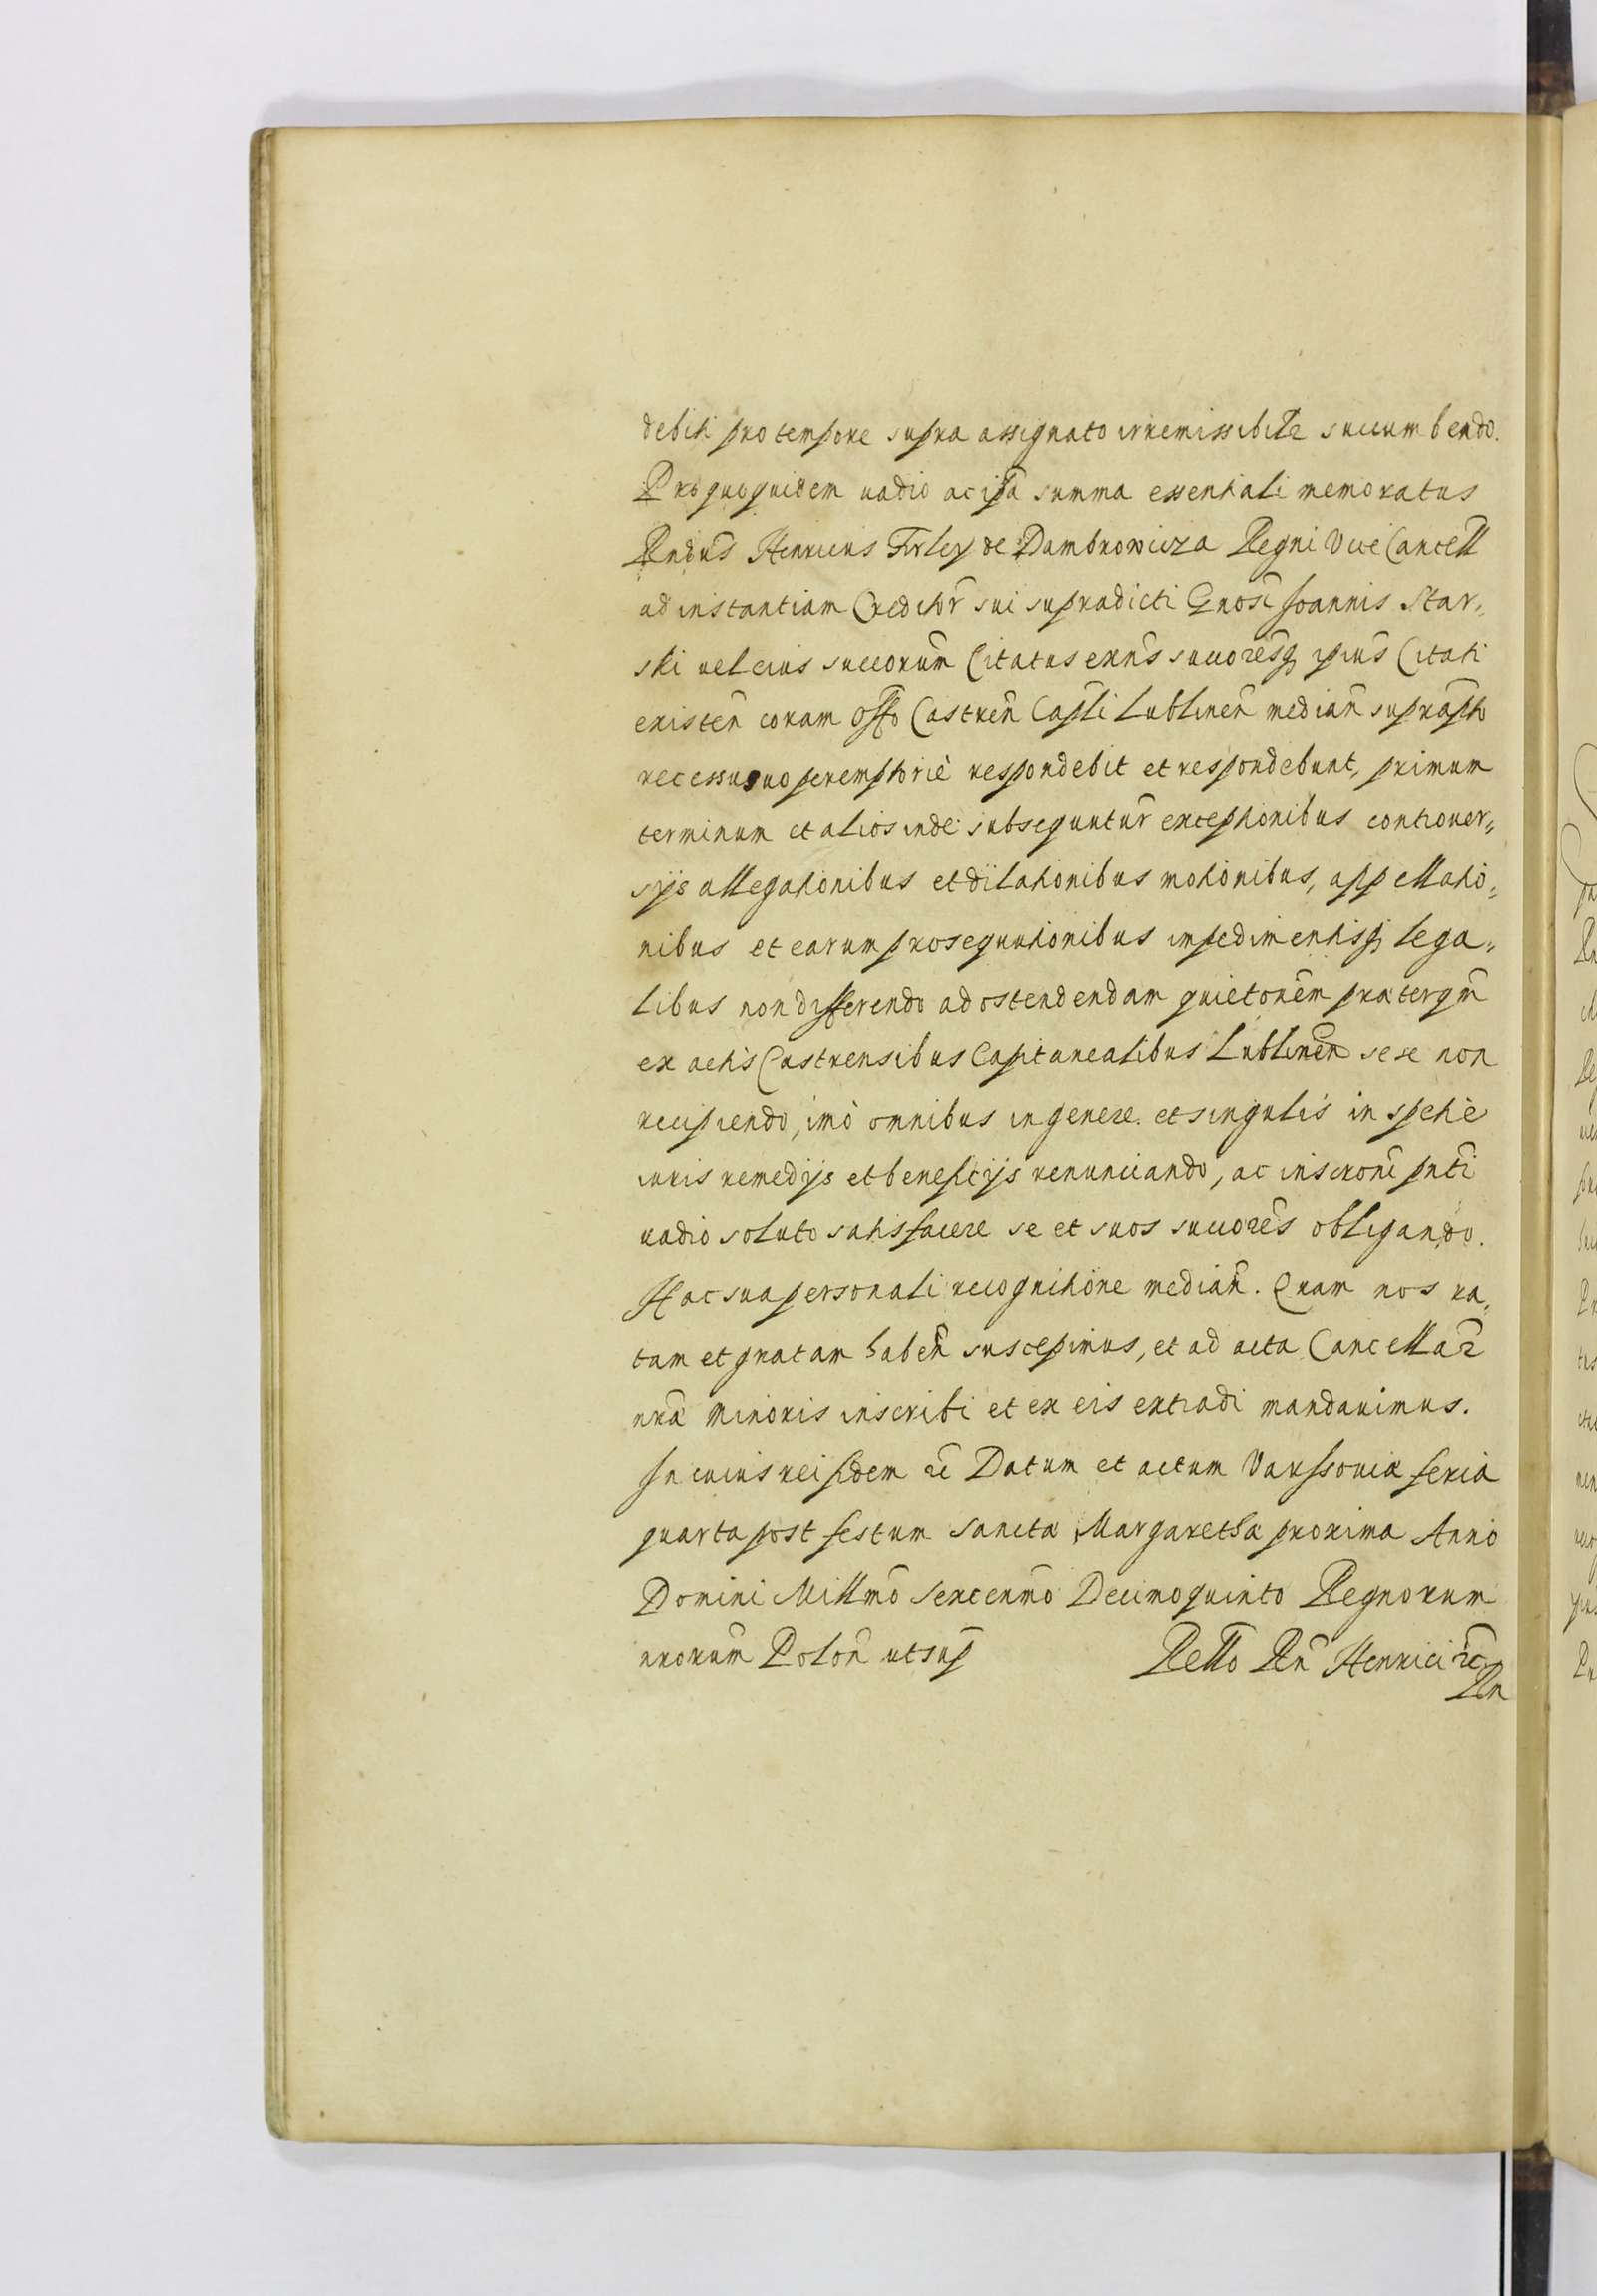 debiti pro tempore supra assignato irremissibilr succumbendo.
Pro quo quidem uadio ac ipā summa essentiali memoratus
Rndūs Henricus Firley de Dambrowicza Regni Vice Cancell
ad instantiam Creditōr sui supradicti Gnōsi Joannis Star„
ski uel eius succorūm Citatus erūs succorēsq ipiūs Citati
existeñ coram offo Castreñ Capli Lublineñ mediañ suprāpto
recessu suo peremptoriè respondebit et respondebunt, primum
terminum et alios inde subsequuntur exceptionibus controuer„
sijs allegationibus et dilationibus motionibus, appellatio„
nibus et earum prosequutionibus impedimentisq lega„
libus non differendo ad ostendendam quietonēm præterqm̄
ex actis Castrensibus Capitanealibus Lublineñ sese non
recipiendo, imò omnibus in genere et singulis in spetiè
iuris remedijs et beneficijs renunciando, ac inscronī pntī
uadio soluto satisfacere se et suos succorēs obligando.
Hac sua personali recognitione mediañ. Quam nos ra„
tam et gratam habeñ suscepimus, et ad acta Cancellar̄
nræ minoris inscribi et ex eis extradi mandauimus.
In cuius rei fidem rc̄ Datum et actum Varssouiæ feria
quarta post festum Sanctæ Margarethæ proxima Anno
Domini Millmō sexcenmō Decimoquinto Regnorum
nrorūm Poloñ ut sup
Rello Rñ Henrici rc̄
Rn